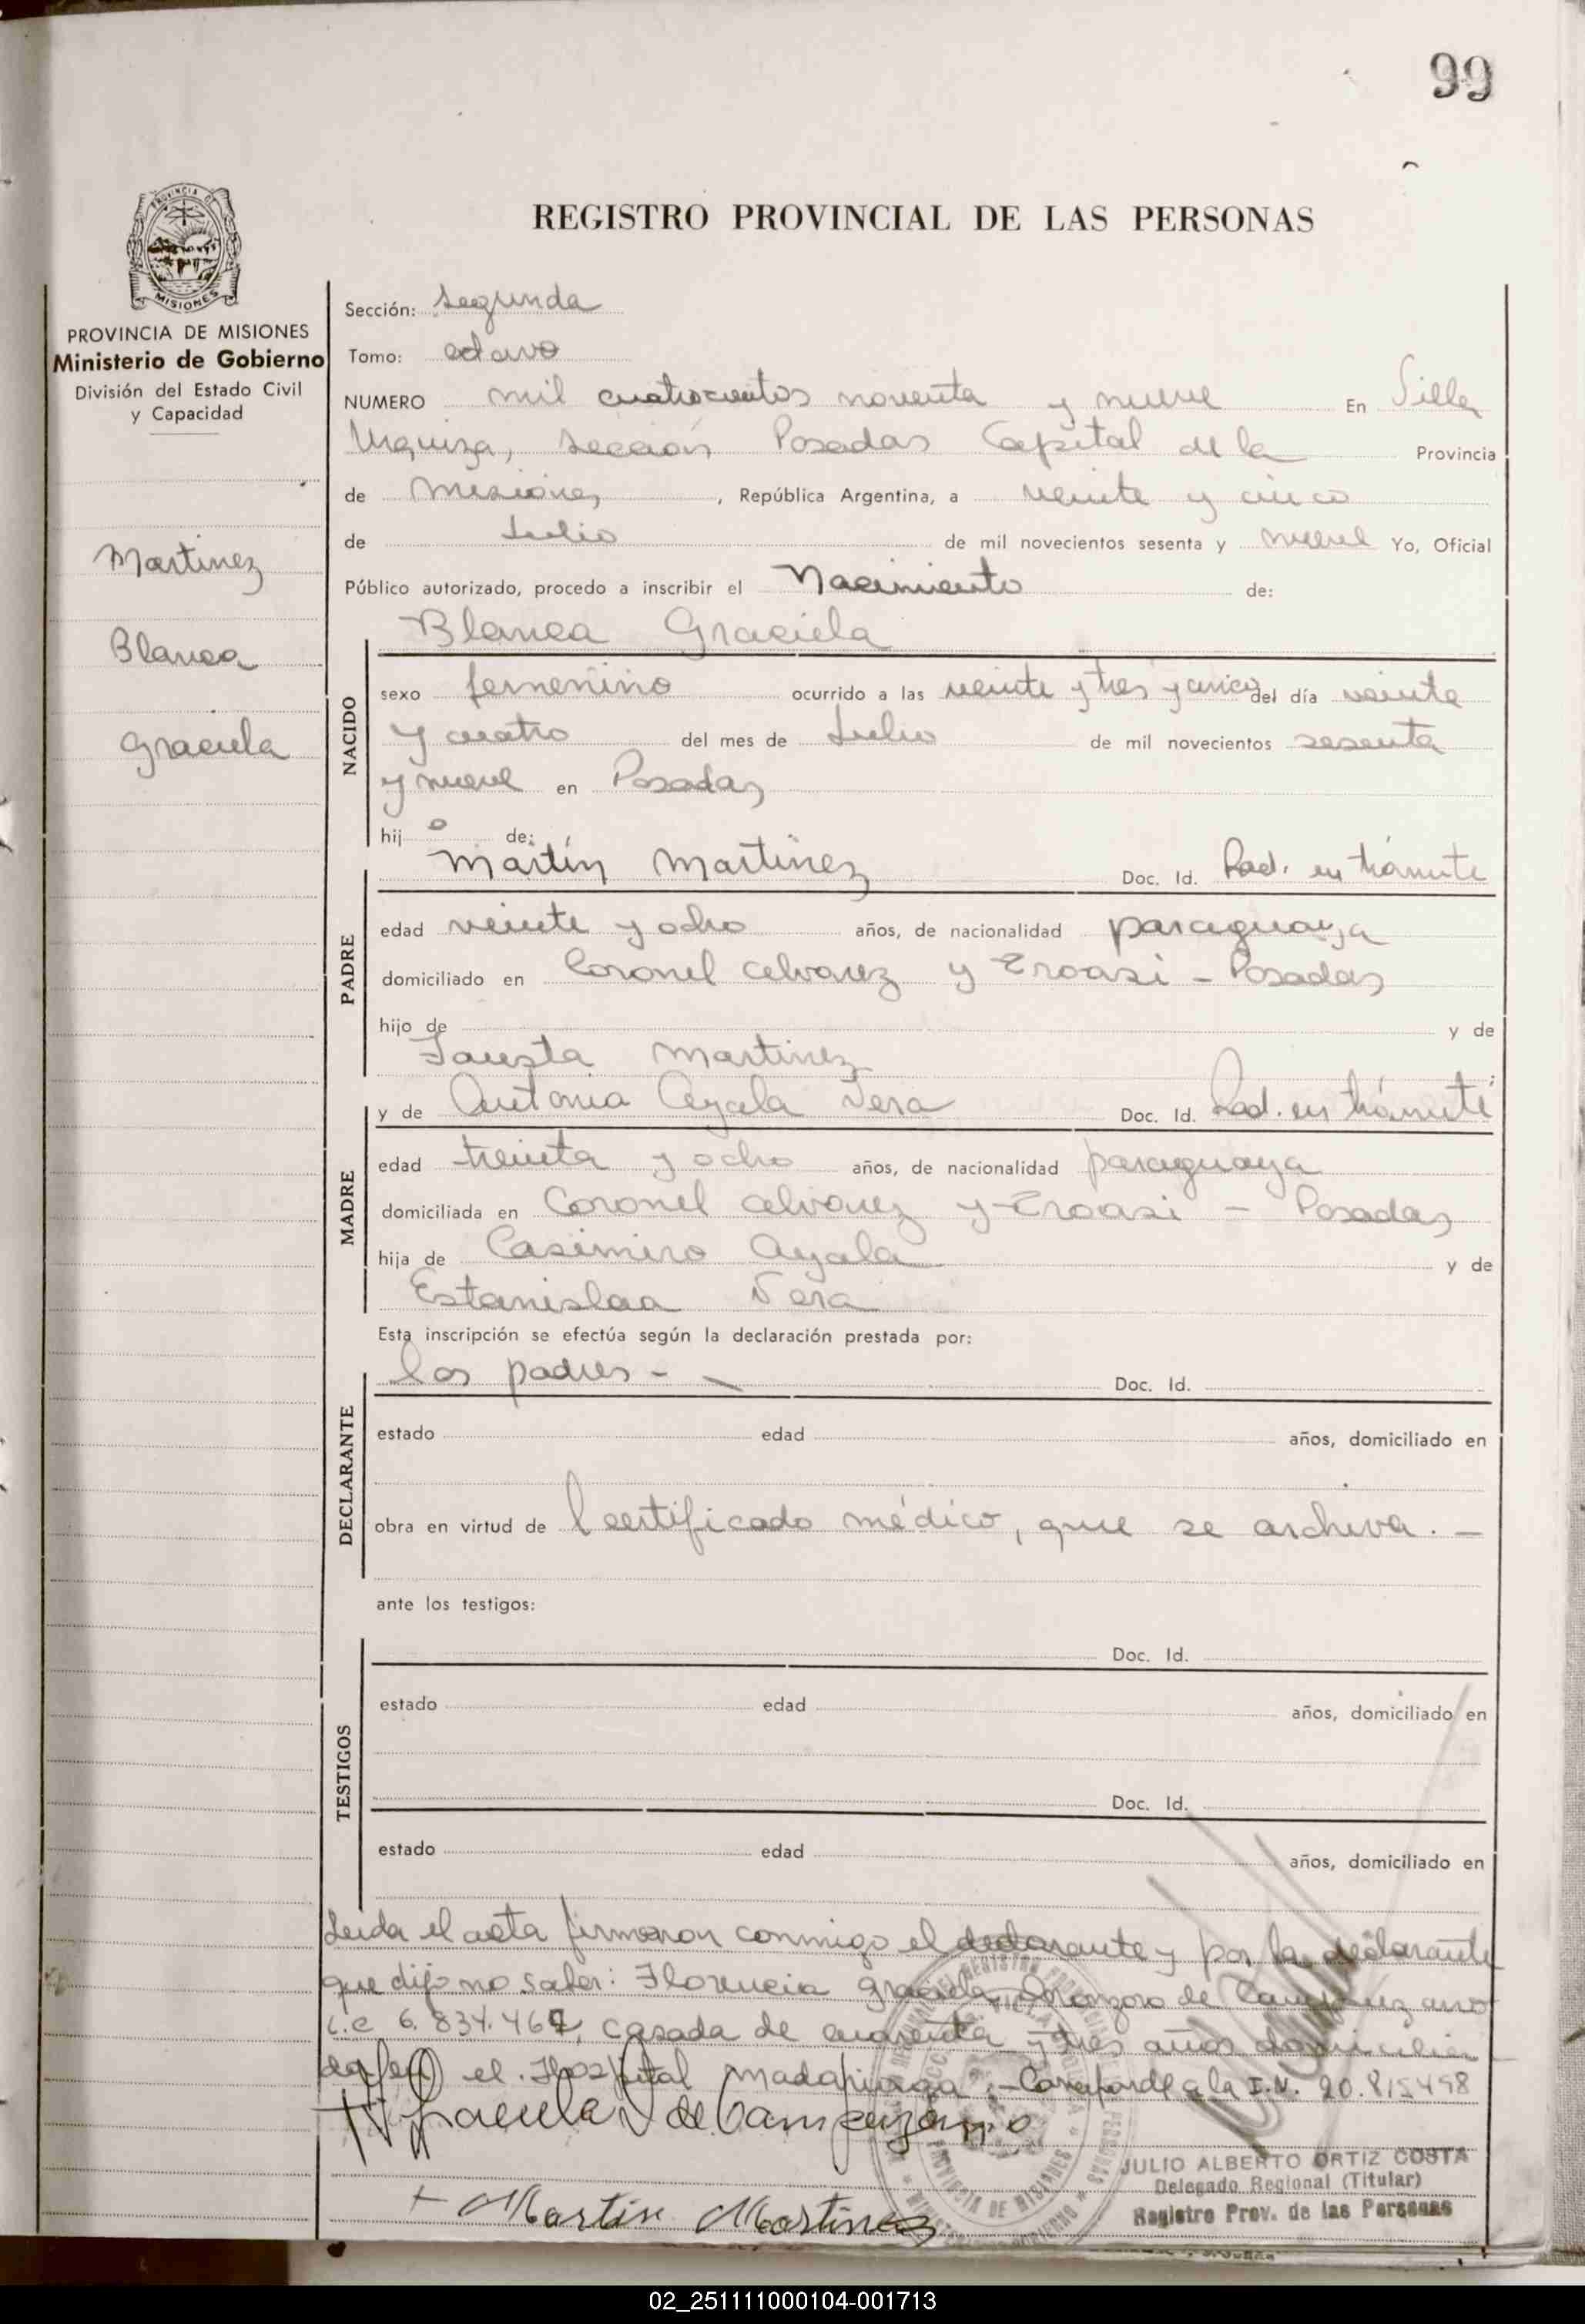 99
REGISTRO PROVINCIAL DE LAS PERSONAS
PROVINCIA DE MISIONES
Ministerio de Gobierno
División del Estado Civil
y Capacidad
Martinez
Blanca
Graciela
Sección: Segunda
Tomo: octavo
NUMERO mil cuatrocientos noventa y nueve En Villa
Urquiza, sección Posadas Capital de la Provincia
de Misiones, República Argentina, a veinte y cinco
de Julio de mil novecientos sesenta y nueve Yo, Oficial
Público autorizado, procedo a inscribir el Nacimiento de:
Blanca Graciela
NACIDO
sexo femenino ocurrido a las veinte y tres y cinco del día veinte
y cuatro del mes de Julio de mil novecientos sesenta
y nueve en Posadas
hij o de:
Martín Martinez Doc. Id. Rad. en trámite
PADRE
edad veinte y ocho años, de nacionalidad paraguaya
domiciliado en Coronel Alvarez y - Posadas
hijo de y de
Fausta Martinez
y de Antonia Ayala Vera Doc. Id. Rad. en trámite
MADRE
edad treinta y ocho años, de nacionalidad paraguaya
domiciliada en Coronel Alvarez y - Posadas
hija de Casimiro Ayala y de
Estanislaa Vera
Esta inscripción se efectúa según la declaración prestada por:
los padres - Doc. Id.
DECLARANTE
estado edad años, domiciliado en
obra en virtud de certificado médico, que se archiva. -
ante los testigos:
Doc. Id.
TESTIGOS
estado edad años, domiciliado en
Doc. Id.
estado edad años, domiciliado en
Leida el acta firmaron conmigo el declarante y por la declarante
que dijo no saber: Florencia Graciela de
casada de cuarenta y tres años domicilia
da en el Hospital Madariaga.- a la I.N. 20.815498
Martin Martinez
JULIO ALBERTO ORTIZ COSTA
Delegado Regional (Titular)
Registro Prov. de las Personas
02_251111000104-001713